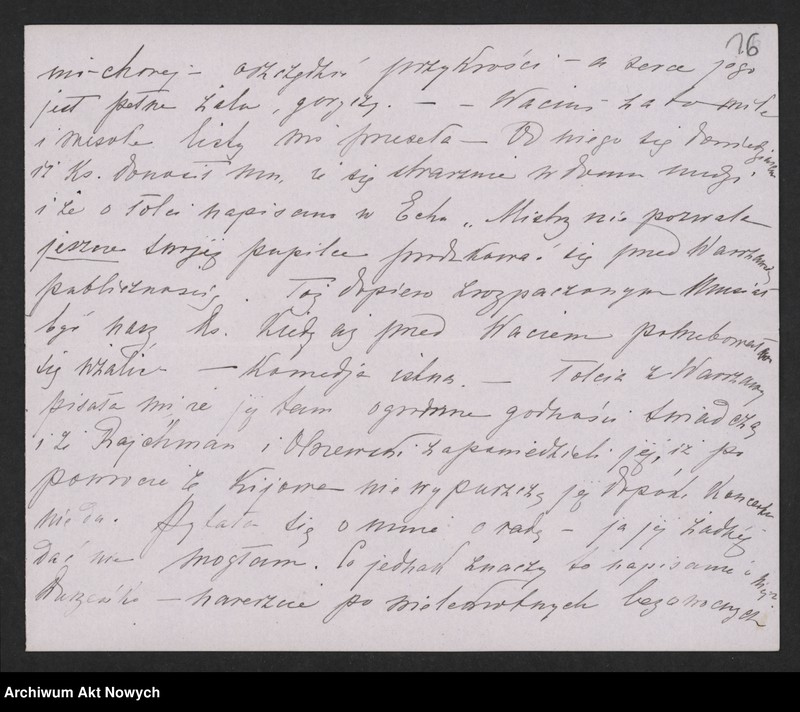 26
mi-chorej - oszczędzić przykrości - a serce jego
jest pełne żalu, goryczy. - - Wacius za to miłe
i wesołe listy mi przesyła - Od niego się
iż Ks. donosił mu, że się strasznie w domu nudzi
i że o Tolci napisano w Echu „Mistrz nie pozwala
jeszcze swojej pupilce produkować się przed Warszawską
publicznością. Toż dopiero zrozpaczonym musiał
być nasz Ks. kiedy aż przed Waciem potrzebował
się użalić - Komedja istna. - Tolcia z Warszawy
pisała mi że jej tam ogromne godności świadczą
i że Rajchman i Olszewski zapowiedzieli jej, iż po
powrocie z Kijowa nie wypuszczą jej dopóki Koncertu
nie da. Pytała się o mnie o radę - ja jej żadnej
dać nie mogłam. Co jednak znaczy to napisanie
- nareszcie po wielokrotnych bezowocnych
Archiwum Akt Nowych